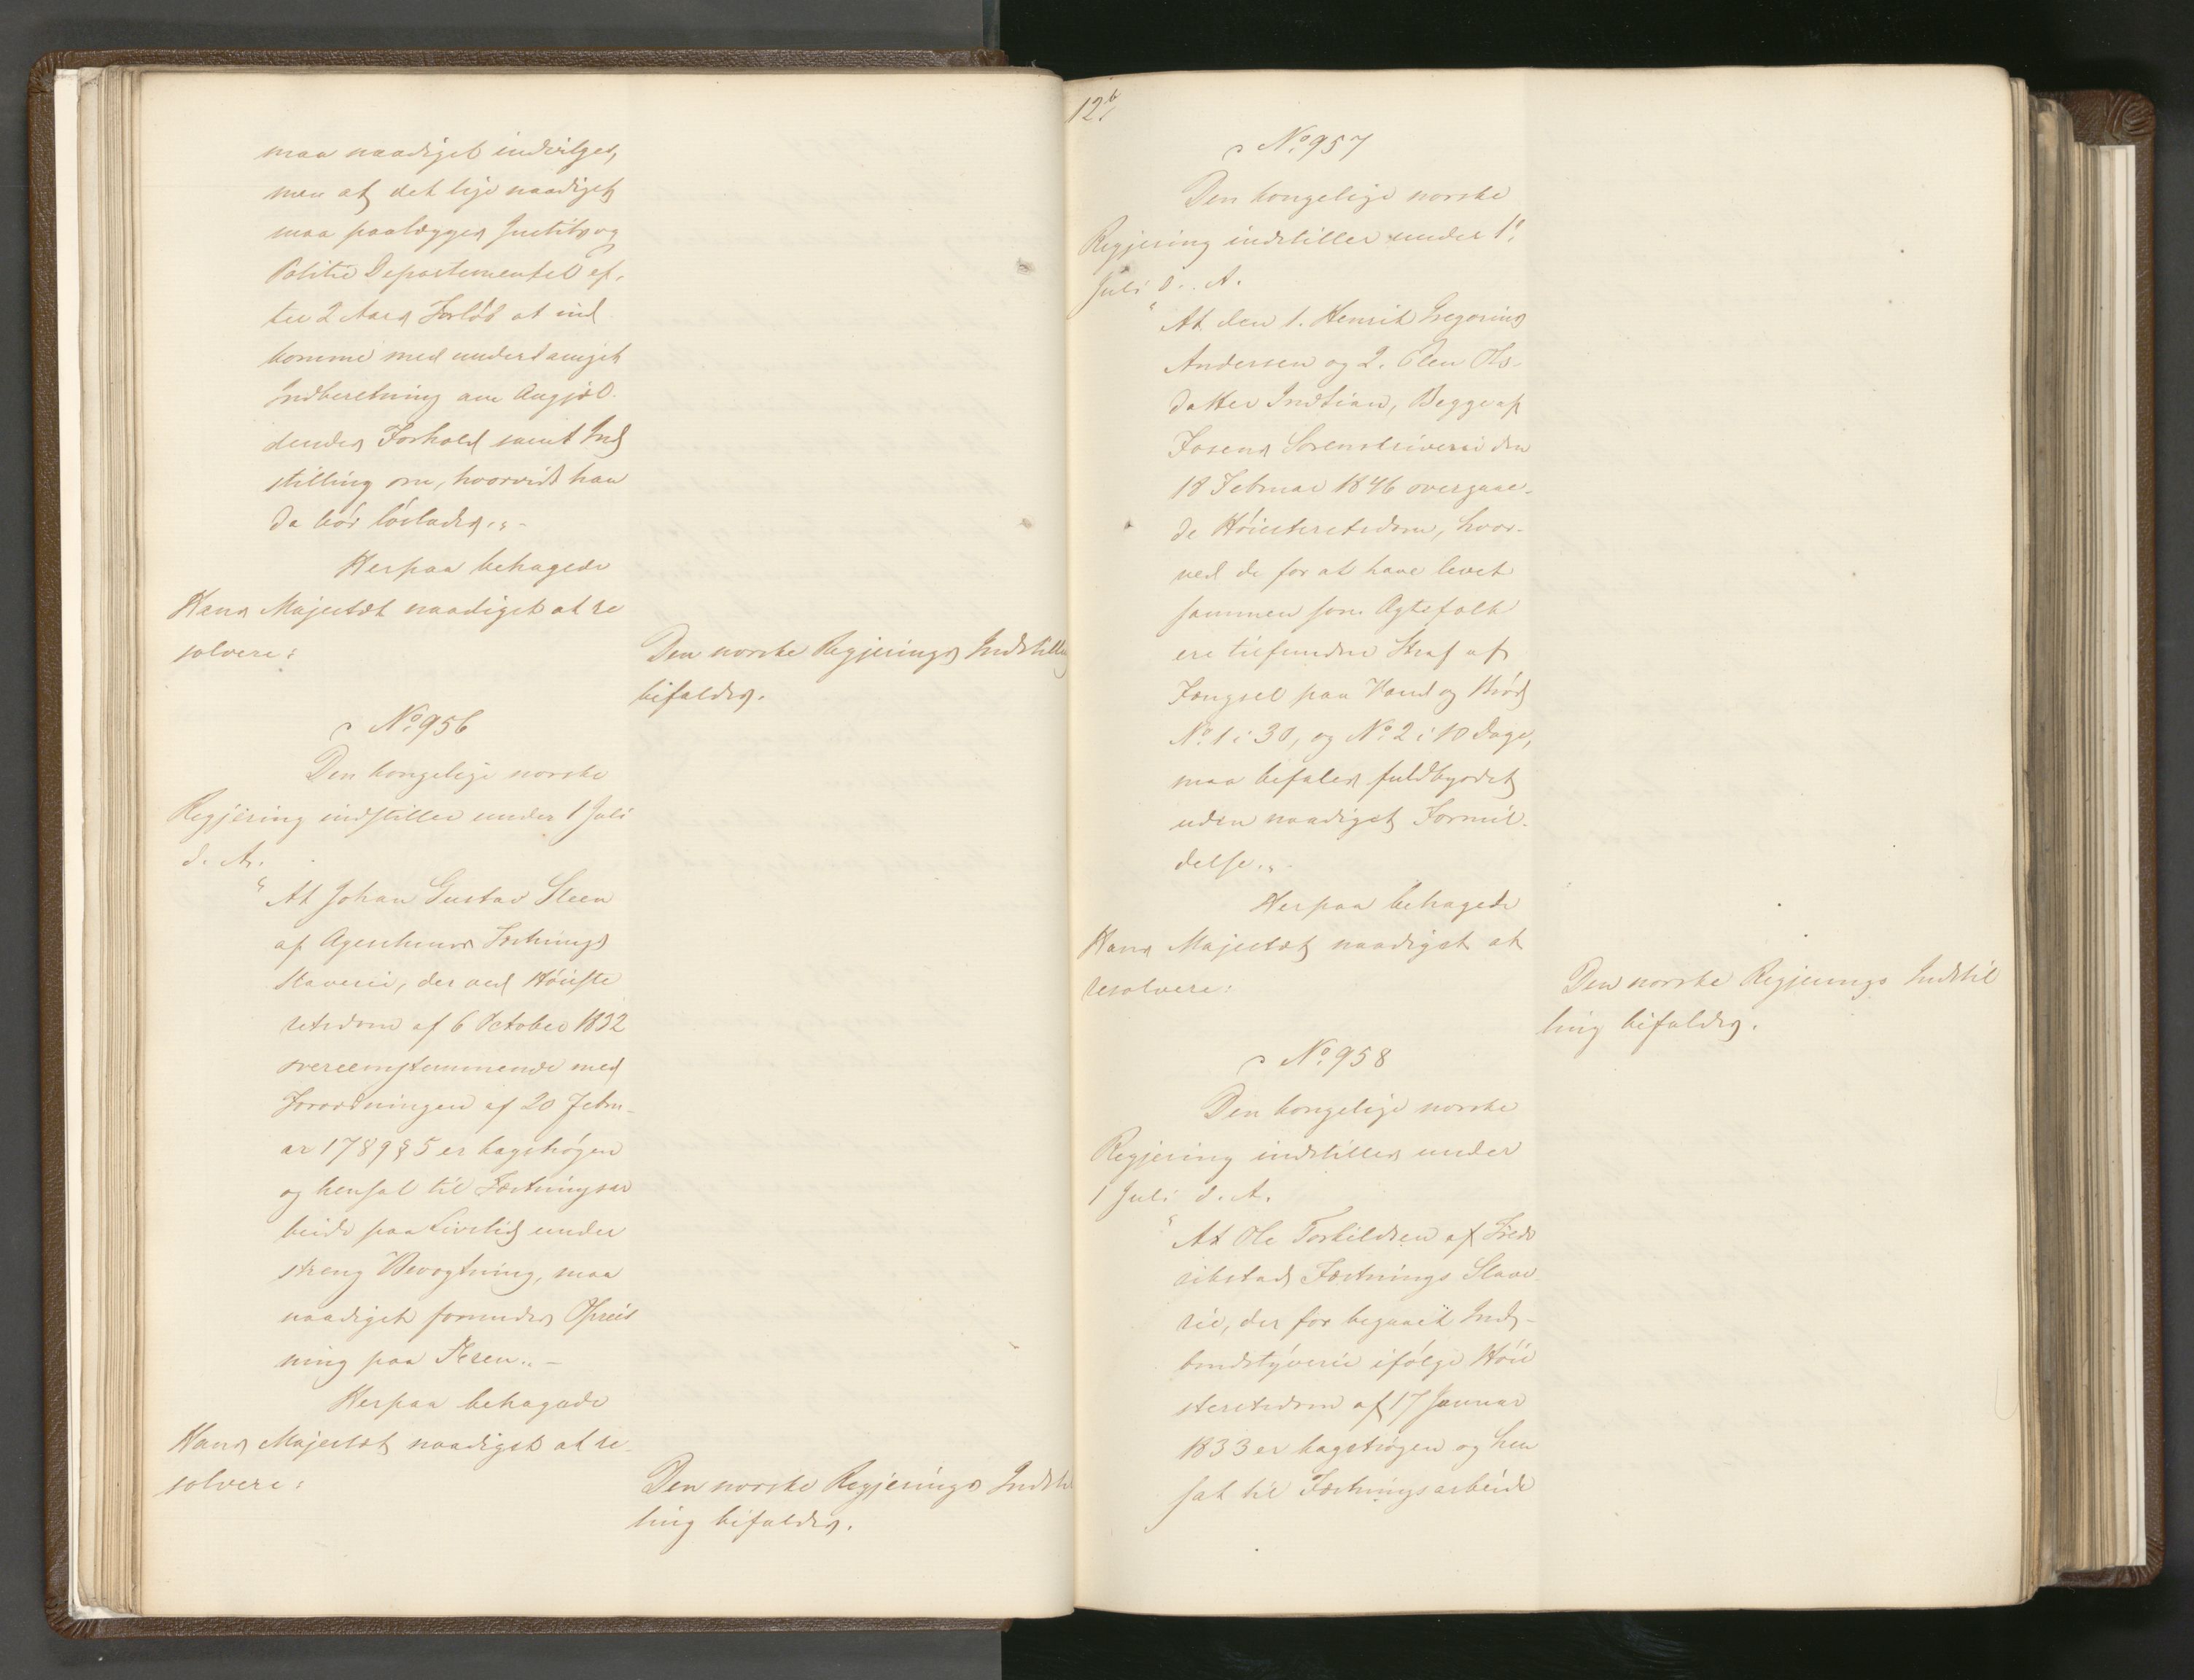 maa naadigst indvilges,
men at det lige naadigst
maa paalægges Justits og
Politie Departementet ef-
ter 2 Aars Forløb at ind
komme med underdanigst
Indberetning om Angjæl-
dendes Forhold samt Ind
stilling om, hvorvidt han
da bør løslades.„-
Herpaa behagede
Hans Majestæt naadigst at re
solvere:
Den norske Regjerings Indstilling
bifaldes.
No 956
Den kongelige norske
Regjering indstiller under 1 Juli
d. A.
"At Johan Gustav Steen
af Agershuus Fæstnings
Slaverie, der ved Høieste
retsdom af 6 October 1832
overeenstemmende med
Forordningen af 20 Febru-
ar 1789 § 5 er kagstrøgen
og hensat til Fæstningsar
beide paa Livstid under
streng Bevogtning, maa
naadigst forundes Opreis
ning paa Æren.„ -
Herpaa behagede
Hans Majestæt naadigst at re-
solvere:
Den norske Regjerings Indstil
ling bifaldes.
126
No 957
Den kongelige norske
Regjering indstiller under 1.
Juli d. A.
"At den 1. Henrik Gregorius
Andersen og 2. Elen Ols-
datter Indtian, Begge af
Fosens Sorenskriverie den
18 Februar 1846 overgaae-
de Høiesteretsdom, hvor-
ved de for at have levet
sammen som Ægtefolk
ere tilfundne Straf af
Fængsel paa Vand og Brød
No 1 i 30, og No 2 i 10 Dage,
maa befales fuldbyrdet
uden naadigst Formil-
delse.„
Herpaa behagede
Hans Majestæt naadigst at
resolvere:
Den norske Regjerings Indstil
ling bifaldes.
No 958
Den kongelige norske
Regjering indstiller under
1 Juli d. A.
"At Ole Torkildsen af Frede
rikstads Fæstnings Slave
rie, der for begaaet Ind-
brudstyverie ifølge Høie
steretsdom af 17 Januar
1833 er kagstrøgen og hen
sat til Fæstningsarbeide